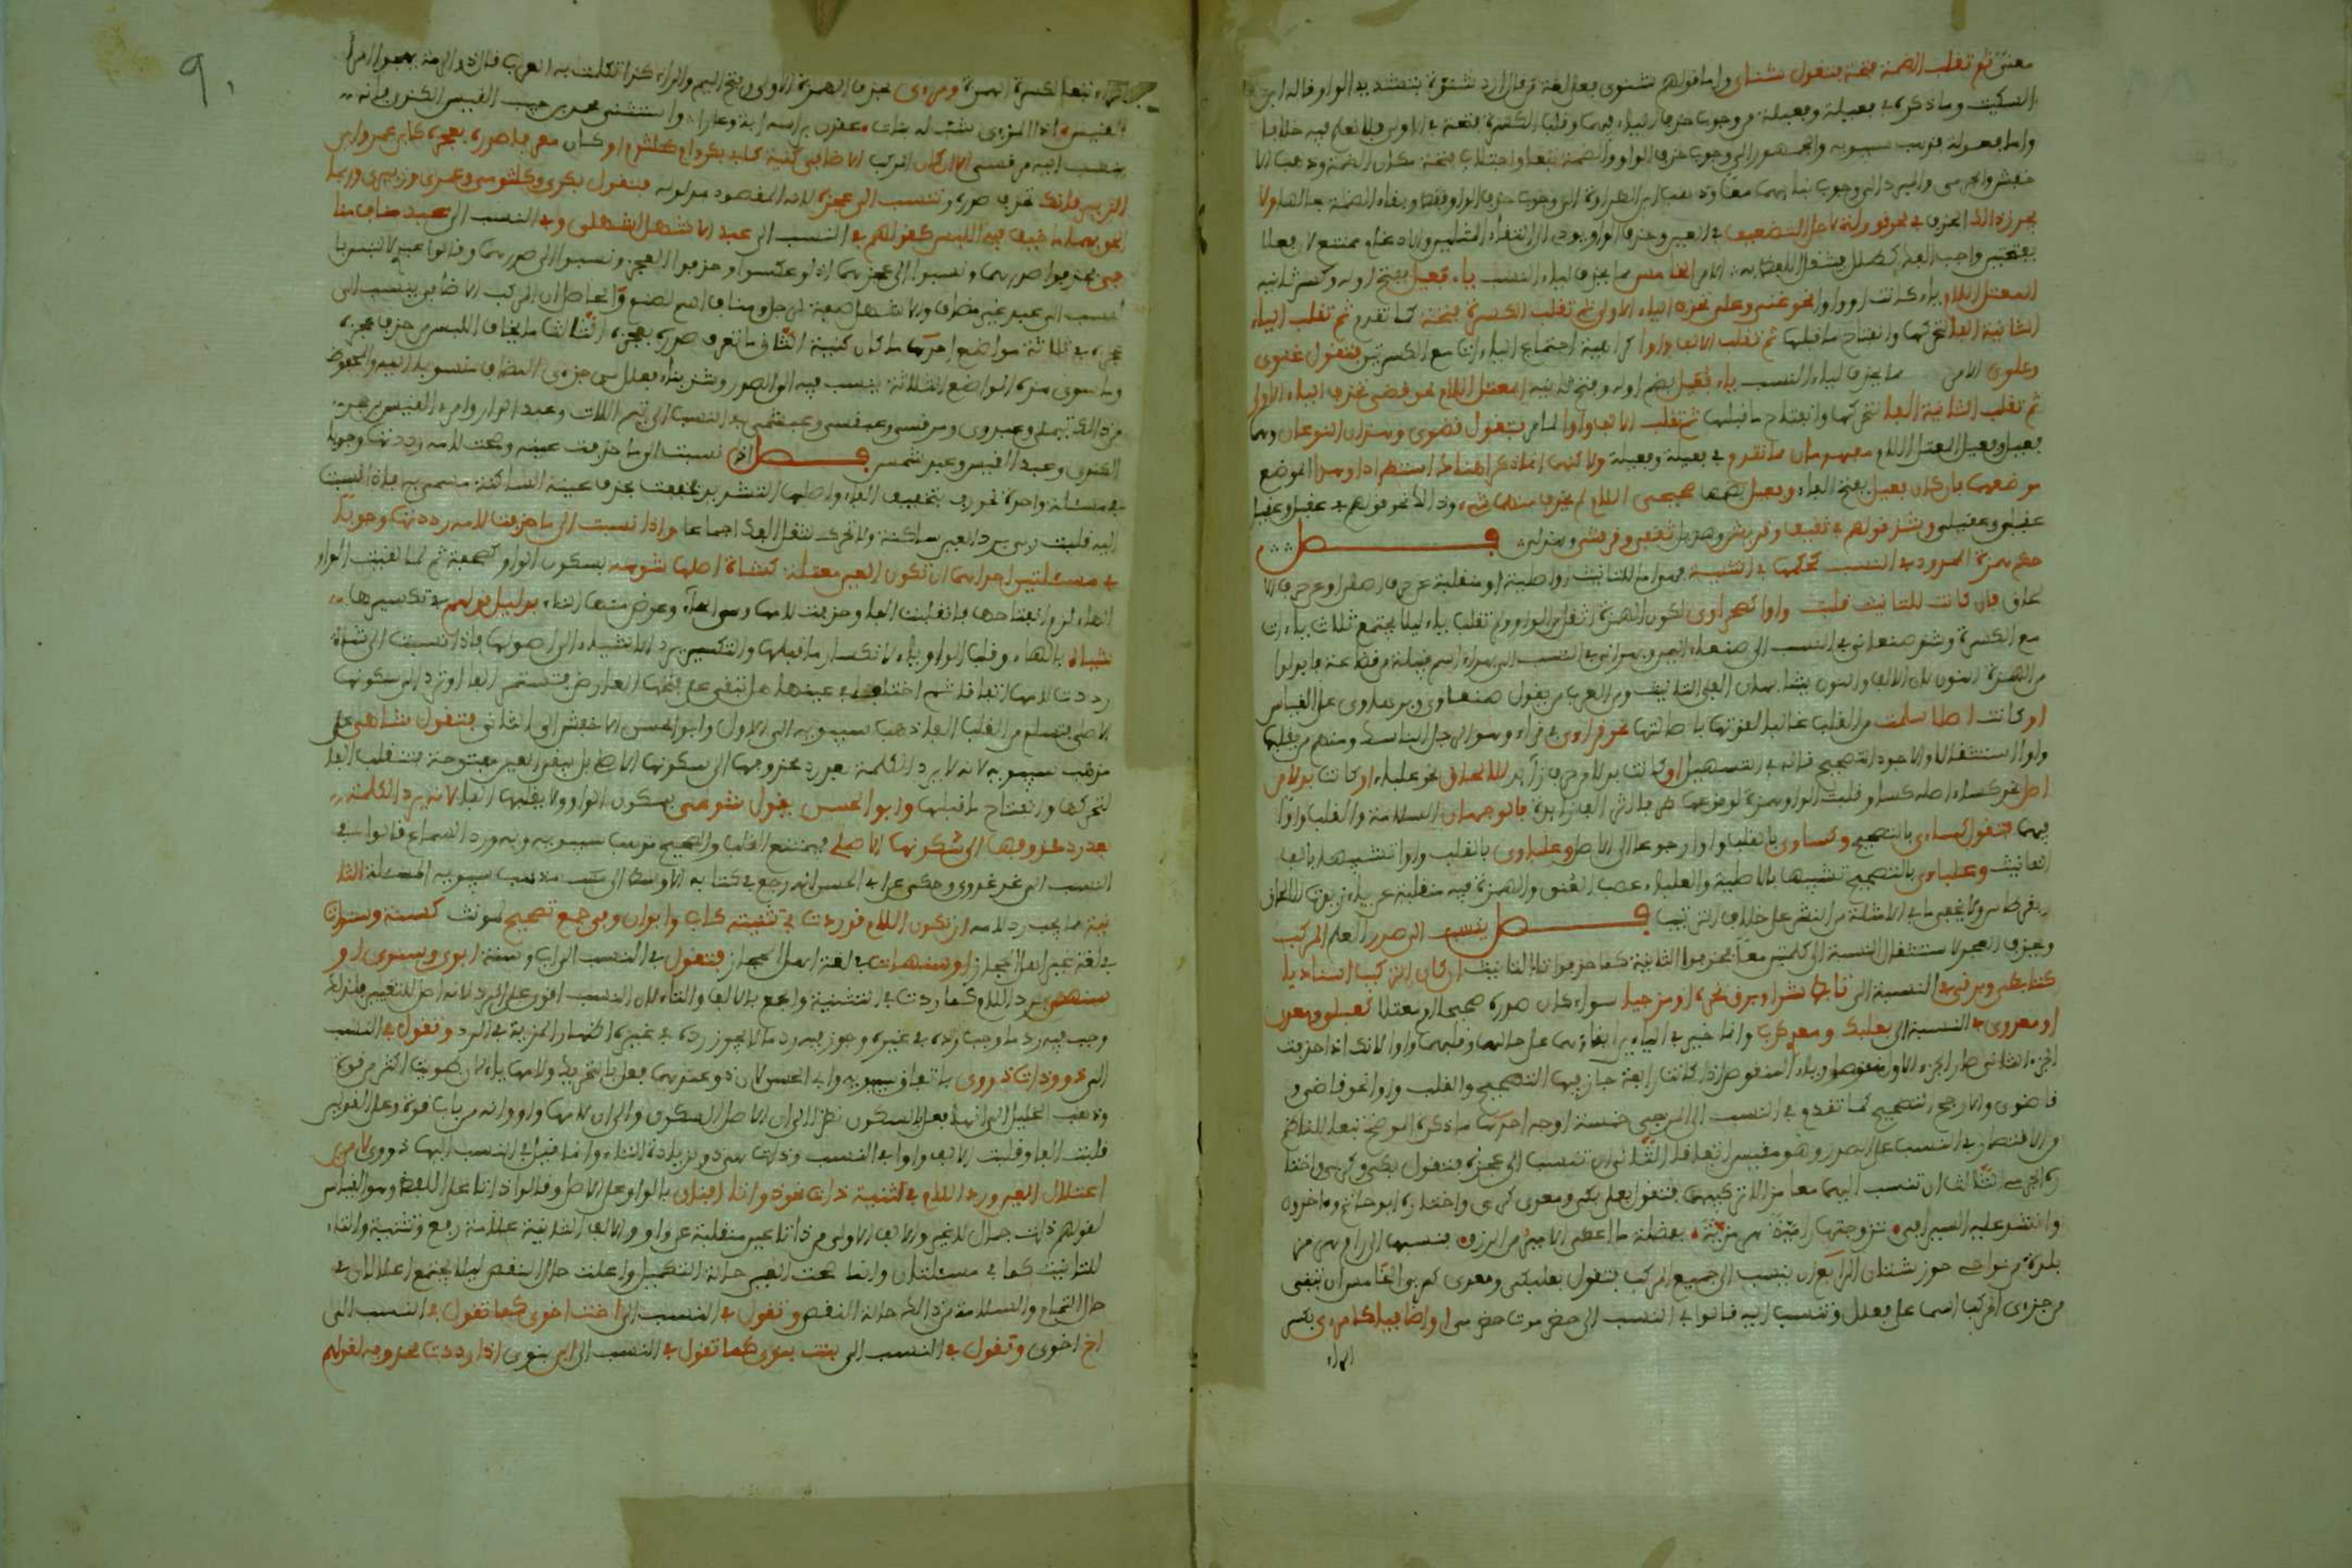 ثم تقلب الضمة فتحة فتقول شنئى واما قولهم شنوى فعلى لغة من قال ازد شنوة بتشديد الواو قاله ابن
السكيت وما ذكره في فعيلة وفعيلة من وجوب حذف الياء فيهما وقلب الكسرة فتحة في الاولى فلا نعلم فيه خلافا
واما فعولة فذهب سيبويه والجمهور الى وجوب حذف الواو والضمة تبعا واجتلاب فتحة مكان الضمة وذهب الا
خفش والجرمى والمبرد الى وجوب بقائهما معا وذهب ابن الطراوة الى وجوب حذف الواو فقط وبقاء الضمة بحالها ولا
يجوز ذلك الحذف في نحو قوولة لاجل التضعيف في العين وحذف الواو يودى الى التقاء المثلين والادغام ممتنع لان فعلا
بفتحتين واجب الفك كطلل فيثقل اللفظ به الامر الخامس مما يحذف لياء النسب ياء فعيل بفتح اوله وكسر ثانيه
المعتل اللام ياء كانت او واوا نحو غنى وعلى تحذف الياء الاولى ثم تقلب الكسرة فتحة كما تقدم ثم تقلب الياء
الثانية الفا لتحركها وانفتاح ما قبلها ثم تقلب الالف واوا كراهية اجتماع الياءات مع الكسرتين فتقول غنوى
وعلوى الامر مما يحذف لياء النسب ياء فعيل بضم اوله وفتح ثانيه المعتل اللام نحو قصى تحذف الياء الاولى
ثم تقلب الثانية الفا لتحركها وانفتاح ما قبلها ثم تقلب الالف واوا لما مر فتقول قصوى وهذان النوعان وهما
فعيل وفعيل المعتلا اللام مفهومان مما تقدم في فعيلة وفعيلة ولاكنهما انما ذكرا هنالك استطرادا وهذا الموضع
موضعهما فان كان فعيل بفتح الفاء وفعيل بضمها صحيحى اللام لم يحذف منهما شىء وذالك نحو قولهم في عقيل وعقيل
عقيلى وعقيلى وشذ قولهم في ثقيف وقريش وهذيل ثقفى وقرشى وهذلى فصل
حكم همزة الممدود في النسب كحكمها في التثنية فهى اما للتانيث او اصلية او منقلبة عن حرف اصلى او عن حرف الا
لحاق فان كانت للتانيث قلبت واوا كصحراوى لكون الهمزة اثقل من الواو ولم تقلب ياء ليلا يجتمع ثلاث ياءات
مع الكسرة وشذ صنعانى في النسب الى صنعاء اليمن وبهرانى في النسب الى بهراء اسم قبيلة من قضاعة فابدلوا
من الهمزة النون لان الالف والنون يشابهان الفى التانيث ومن العرب من يقول صنعاوى وبهراوى على القياس
او كانت اصلا سلمت من القلب غالبا لقوتها باصالتها نحو قراوى في قراء وهو الرجل الناسك ومنهم من يقلبها
واوا استثقالا والاجود التصحيح قاله في التسهيل او كانت بدلا من حرف زائد للالحاق نحو علباء او كانت بدلا من
اصل نحو كساء اصله كساو قلبت الواو همزة لوقوعها طرفا اثر الف زائدة فالوجهان السلامة والقلب واوا
فيهما فتقول كساءى بالتصحيح وكساوى بالقلب واوا رجوعا الى الاصل وعلباوى بالقلب واوا تشبيها لها بالف
التانيث وعلباءى بالتصحيح تشبيها بالاصلية والعلباء عصب العنق والهمزة فيه منقلبة عن ياء زيدت للالحاق
بقرطاس ولا يخفى ما في الامثلة من النشر على خلاف الترتيب فصل ينسب الى صدر العلم المركب
ويحذف العجز لاستثقال النسبة الى كلمتين معا فحذفوا الثانية كما حذفوا تاء التانيث ان كان التركيب اسناديا
كتابطى وبرقى في النسبة الى تابط شرا وبرق نحره او مزجيا سواء كان صدره صحيحا ام معتلا كبعلى ومعدى
او معدوى في النسبة الى بعلبك ومعدى كرب وانما خير في الياء بين ابقائها على حالها وقلبها واوا لانك اذا حذفت
الجزء الثانى صار الجزء الاول منقوصا وياء المنقوص اذا كانت رابعة جاز فيها التصحيح والقلب واوا نحو قاضى و
قاضوى والارجح التصحيح كما تقدم في النسب الى المزجى خمسة اوجه احدها ما ذكره الموضح تبعا للناظم
من الاقتصار في النسب على الصدر وهو مقيس اتفاقا الثانى ان تنسب الى عجزه فتقول بكى وكربى واختا
ره الجرمى الثالث ان تنسب اليهما معا مزالا تركيبهما فتقول بعلى بكى ومعدى كربى واختاره ابو حاتم وءاخرون
وانشد عليه السيرافى تزوجتها رامية هرمزية بفضلة ما اعطى الامير من الرزق فنسبها الى رام هرمز
بلدة من نواحى خوزستان الرابع ان ينسب الى جميع المركب فتقول بعلبكى ومعدى كربى الخامس ان تبنى
من جزءى المركب اسما على فعلل وتنسب اليه قالوا في النسب الى حضرموت حضرمى او اضافيا كامرءى بكسر
الراء
الراء تبعا لكسرة الهمزة ومرءى بحذف الهمزة الاولى وفتح الميم والراء كذا تكلمت به العرب قال ذو الرمة يهجو امرا
القيس اذا المرءى شب له بنات عقدن براسه ابة وعارا واستثنى محمد بن حبيب امرا القيس الكندى فانه
ينسب اليه مرقسى الا ان كان المركب الاضافى كنية كابى بكر وام كلثوم او كان معرفا صدره بعجزه كابن عمر وابن
الزبير فانك تحذف صدره وتنسب الى عجزه لانه المقصود مدلوله فتقول بكرى وكلثومى وعمرى وزبيرى وربما
الحق بهما ما خيف فيه اللبس كقولهم في النسب الى عبد الاشهل اشهلى وفي النسب الى عبد مناف منا
فى فحذفوا صدرهما ونسبوا الى عجزهما اذ لو عكسوا وحذفوا العجز ونسبوا الى صدرهما وقالوا عبدى لالتبس با
لنسب الى عبد غير مضاف والاشهل صفة لرجل ومناف اسم لصنم والحاصل ان المركب الاضافى ينسب الى
عجزه في ثلاثة مواضع احدها ما كان كنية الثانى ما تعرف صدره بعجزه الثالث ما يخاف اللبس من حذف عجزه
وما سوى هذه المواضع الثلاثة ينسب فيه الى الصدر وشذ بناء فعلل من جزءى المضاف منسوبا اليه والمحفوظ
من ذالك تيملى وعبدرى ومرقسى وعبقسى وعبشمى في النسب الى تيم اللات وعبد الدار وامرء القيس بن حجر
الكندى وعبد القيس وعبد شمس فصل اذا نسبت الى ما حذفت عينه وصحت لامه رددتها وجوبا
في مسئلة واحدة نحو رب بتخفيف الباء واصلها التشديد فخففت بحذف عينه الساكنة مسمى به فاذا نسبت
اليه قلت ربى برد العين ساكنة ولا تحرك لثقل الفك اجماعا واذا نسبت الى ما حذفت لامه رددتها وجوبا
في مسئلتين احداهما ان تكون العين معتلة كشاة اصلها شوهة بسكون الواو كصحفة ثم لما لقيت الواو
الهاء لزم انفتاحها فانقلبت الفا وحذفت لامها وهى الهاء وعوض منها التاء بدليل قولهم في تكسيرها
شياه بالهاء وقلب الواو ياء لانكسار ما قبلها والتكسير يرد الاشياء الى اصولها فاذا نسبت الى شاة
رددت لامها اتفاقا ثم اختلف في عينها هل تبقى على فتحها العارض فتستمر الفا او ترد الى سكونها
الاصلى فتسلم من القلب الفا ذهب سيبويه الى الاول وابو الحسن الاخفش الى الثانى فتقول شاهى على
مذهب سيبويه لانه لا يرد الكلمة بعد رد محذوفها الى سكونها الاصلى بل يبقى العين مفتوحة فتنقلب الفا
لتحركها وانفتاح ما قبلها وابو الحسن يقول شوهى بسكون الواو ولا يقلبها الفا لانه يرد الكلمة
بعد رد محذوفها الى سكونها الاصلى فيمتنع القلب والصحيح مذهب سيبويه وبه ورد السماع قالوا في
النسب الى غد غدوى وحكى عن ابى الحسن انه رجع في كتابه الاوسط الى مذهب سيبويه المسئلة الثا
نية مما يجب رد لامه ان تكون اللام قد ردت في تثنيته كاب وابوان وفى جمع تصحيح لمونث كسنة وسنوات
في لغة غير اهل الحجاز او سنهات في لغة اهل الحجاز فتقول في النسب الى اب وسنة ابوى وسنوى او
سنهى برد اللام كما ردت في التثنية والجمع بالالف والتاء لان النسب اقوى على الرد لانه اصل للتغيير فلذالك
وجب فيه رد ما وجب رده في غيره وجوز فيه رد ما لا يجوز رده في غيره اظهارا لمزيته في الرد وتقول في النسب
الى ذو وذات ذووى باتفاق سيبويه وابى الحسن لان ذو عندهما فعل بالتحريك ولامها ياء لان باب طويت اكثر من قوة
وذهب الخليل الى انها فعل بالسكون نظرا الى ان الاصل السكون والى ان لامها واو وانه من باب قوة وعلى القولين
قلبت الفا وقلبت الالف واوا في النسب وذات هى ذو بزيادة التاء وانما قيل في النسب اليها ذووى لامرين
اعتلال العين ورد اللام في تثنية ذات نحو ذواتا افنان بالواو على الاصل وقالوا ذاتا على اللفظ وهو القياس
للتانيث كما في مسئلتان وانما صحت العين حالة التكميل واعلت حال النقص ليلا يجتمع اعلالان في
حال التمام والسلامة من ذالك حالة النقص وتقول في النسب الى اخت اخوى كما تقول في النسب الى
اخ اخوى وتقول في النسب الى بنت بنوى كما تقول في النسب الى ابن بنوى اذا رددت محذوفه لقولهم